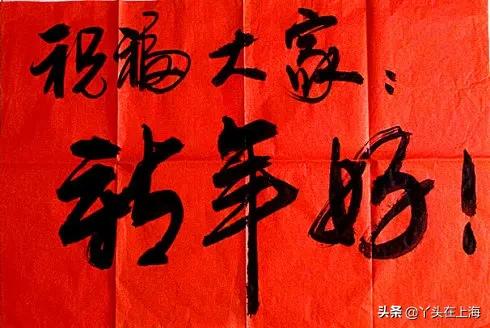 祝福大家：
新年好！
头条 @丫头在上海